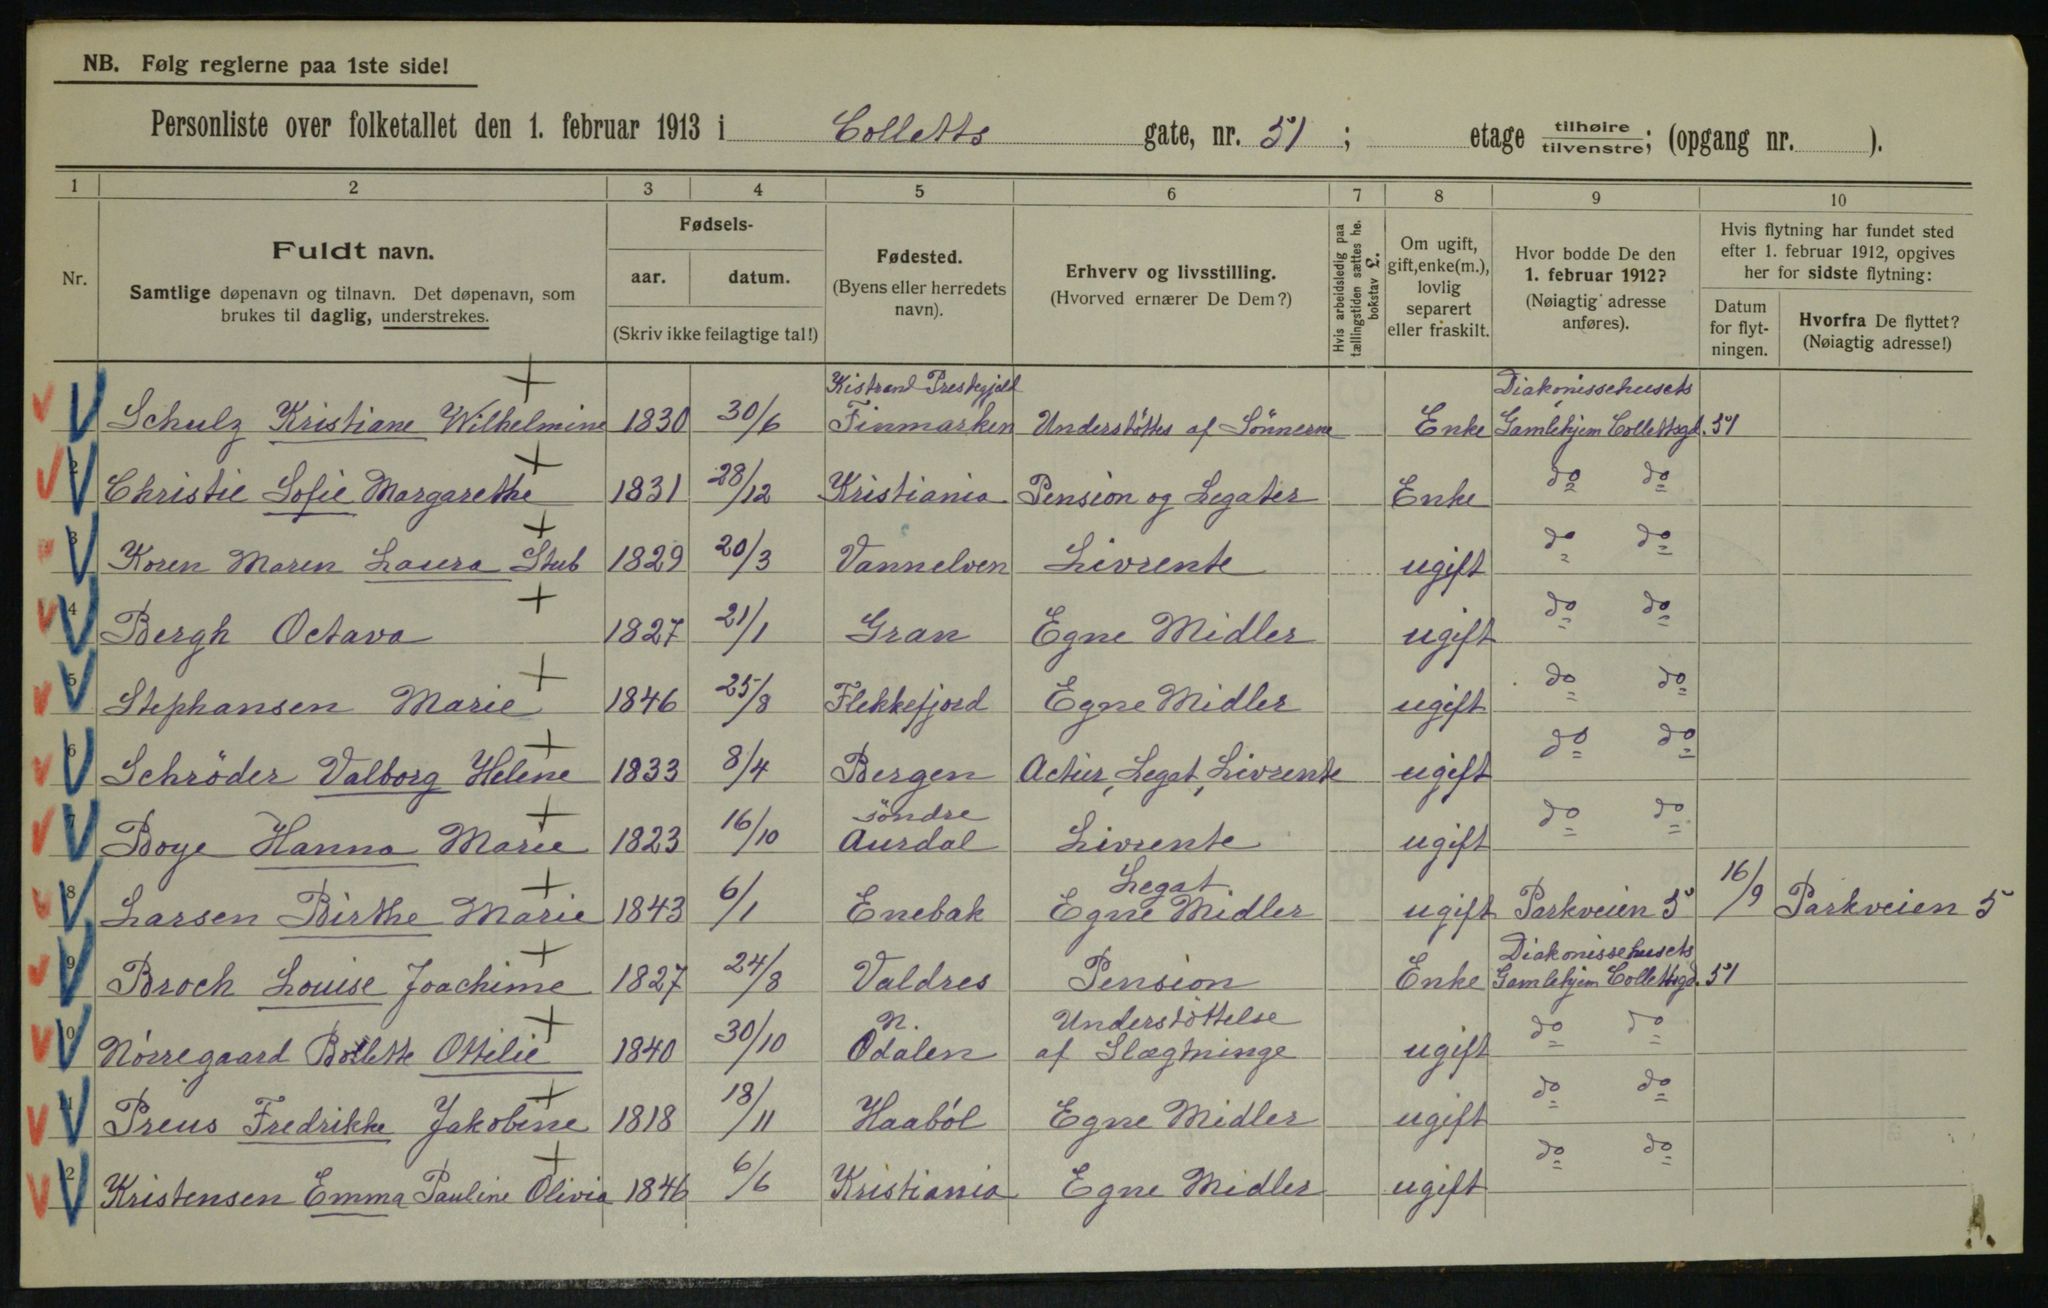 NB. Følg reglerne paa 1ste side!
Personliste over folketallet den 1. februar 1913 i Colletts gate, nr. 51 ; etage tilhøire tilvenstre; (opgang nr. ).
1 2 3 4 5 6 7 8 9 10
Nr.
Fuldt navn.
Samtlige døpenavn og tilnavn. Det døpenavn, som
brukes til daglig, understrekes.
Fødsels-
aar. datum.
(Skriv ikke feilagtige tal!)
Fødested.
(Byens eller herredets
navn).
Erhverv og livsstilling.
(Hvorved ernærer De Dem?)
Hvis arbeidsledig paa
tællingstiden sættes he.
bokstav L.
Om ugift,
gift, enke(m.),
lovlig
separert
eller fraskilt.
Hvor bodde De den
1. februar 1912?
(Nøiagtig adresse
anføres).
Hvis flytning har fundet sted
efter 1. februar 1912, opgives
her for sidste flytning:
Datum
for flyt-
ningen.
Hvorfra De flyttet?
(Nøiagtig adresse!)
Kistrand Prestegjeld Diakonissehusets
Schulz Kristiane Wilhelmine 1830 30/6 Finmarken Understöttes af Sönnerne Enke Gamlehjem Collettsgd. 51
2 Christie Sofie Margarethe 1831 28/12 Kristiania Pension og Legater Enke do do
3 Koren Maren Laura Stub 1829 20/3 Vannelven Livrente ugift do do
4 Bergh Octava 1827 21/1 Gran Egne Midler ugift do do
5 Stephansen Marie 1846 25/8 Flekkefjord Egne Midler ugift do do
6 Schrøder Valborg Helene 1833 8/4 Bergen Actier, Legat, Livrente ugift do do
söndre
7 Boye Hanna Marie 1823 16/10 Aurdal Livrente ugift do do
Legat
8 Larsen Birthe Marie 1843 6/1 Enebak Egne Midler ugift Parkveien 5 16/9 Parkveien 5
Diakonissehusets
9 Broch Louise Joachime 1827 24/8 Valdres Pension Enke Gamlehjem Collettsgd. 51
N. Understöttelse
10 Nórregaard Bollette Ottilie 1840 30/10 Odalen af Slægtninge ugift do do
11 Preus Fredrikke Jakobine 1818 18/11 Haaból Egne Midler ugift do do
12 Kristensen Emma Pauline Olivia 1846 6/6 Kristiania Egne Midler ugift do do